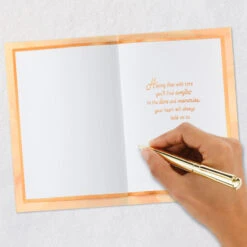 Hoping that with time
you'll find comfort
in the love and memories
your heart will always
hold on to.